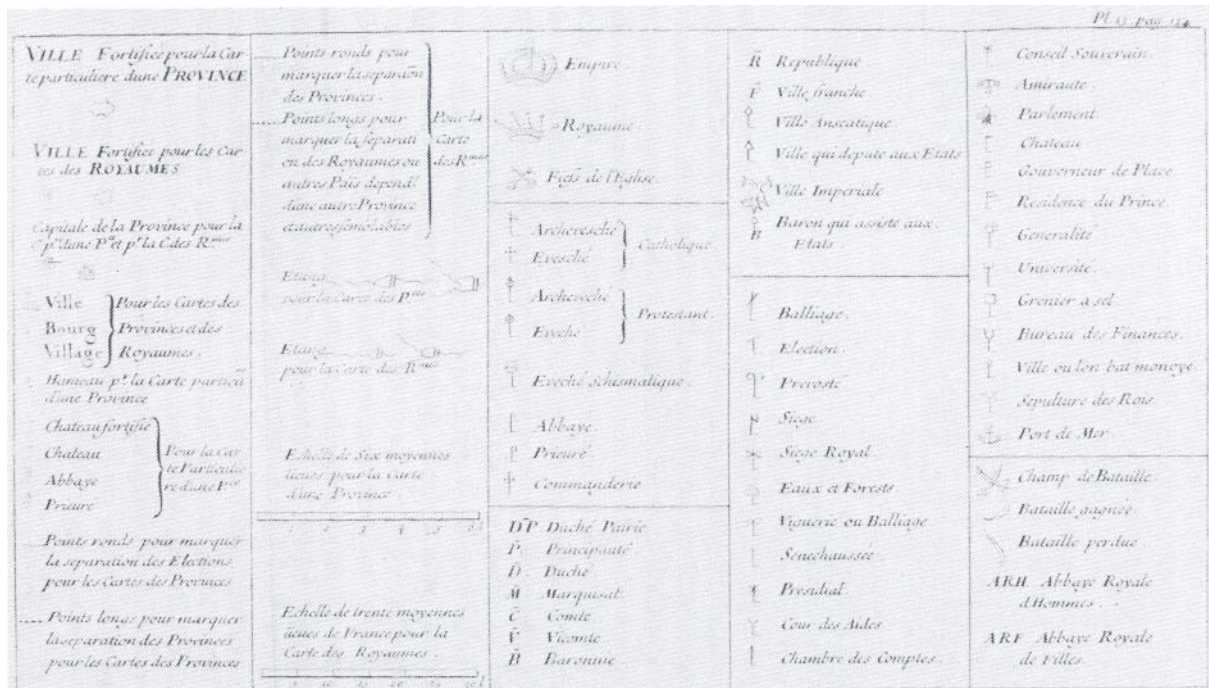 Pl. pag.
VILLE Fortifiée pour la Car
te particuliere dune PROVINCE
VILLE Fortifiée pour les Car
tes des ROYAUMES
Capitale de la Province pour la
Ville
Bourg
Village
Pour les Cartes des
Provinces et des
Royaumes.
Hameau pr. la Carte particu
d'une Province
Chateau fortifié
Chateau
Abbaye
Prieuré
Pour la Car
te Particulie
re d'une Pce
Points ronds pour marquer
la separation des Elections
pour les Cartes des Provinces
Points longs pour marquer
la separation des Provinces
pour les Cartes des Provinces
Points ronds pour
marquer la separaōn
des Provinces.
Points longs pour
marquer la separati
on des Royaumes ou
autres Païs depend.t
d'une autre Province
et autres semblables
Pour la
Carte
des Rmes
Etang
pour la Carte des Pces
Etang
pour la Carte des Rmes
Echelle de Six moyennes
lieues pour la Carte
d'une Province.
1 2 3 4 5 6 l
Echelle de trente moyennes
lieues de France pour la
Carte des Royaumes.
5 10 20
Empire.
Royaume
Fiefs de l'Eglise.
Archevesché
Evesché
Catholique.
Archeveché
Eveché
Protestant.
Eveché schismatique.
Abbaye.
Prieuré.
Commanderie
D̄P Duché Pairie
P̄. Principauté
D̄. Duché
M̄ Marquisat.
C̄ Comté
V̄ Vicomte
B̄ Baronnie
R̄ Republique
F̄ Ville franche
Ville Anseatique
Ville qui depute aux Etats
Ville Imperiale
B Baron qui assiste aux
Etats.
Balliage.
Election.
Prevosté
Siege
Siege Royal
Eaux et Forests
Viguerie ou Balliage
Senechaussée
Presidial
Cour des Aides
Chambre des Comptes.
Conseil Souverain.
Amirauté.
Parlement.
Chateau
Gouverneur de Place
Residence du Prince
Generalité
Université.
Grenier a sel
Bureau des Finances.
Ville ou lon bat monoye.
Sepulture des Rois.
Port de Mer.
Champ de Bataille
Bataille gagnée
Bataille perdue.
ARH. Abbaye Royale
d'Hommes.
ARF Abbaye Royale
de Filles.